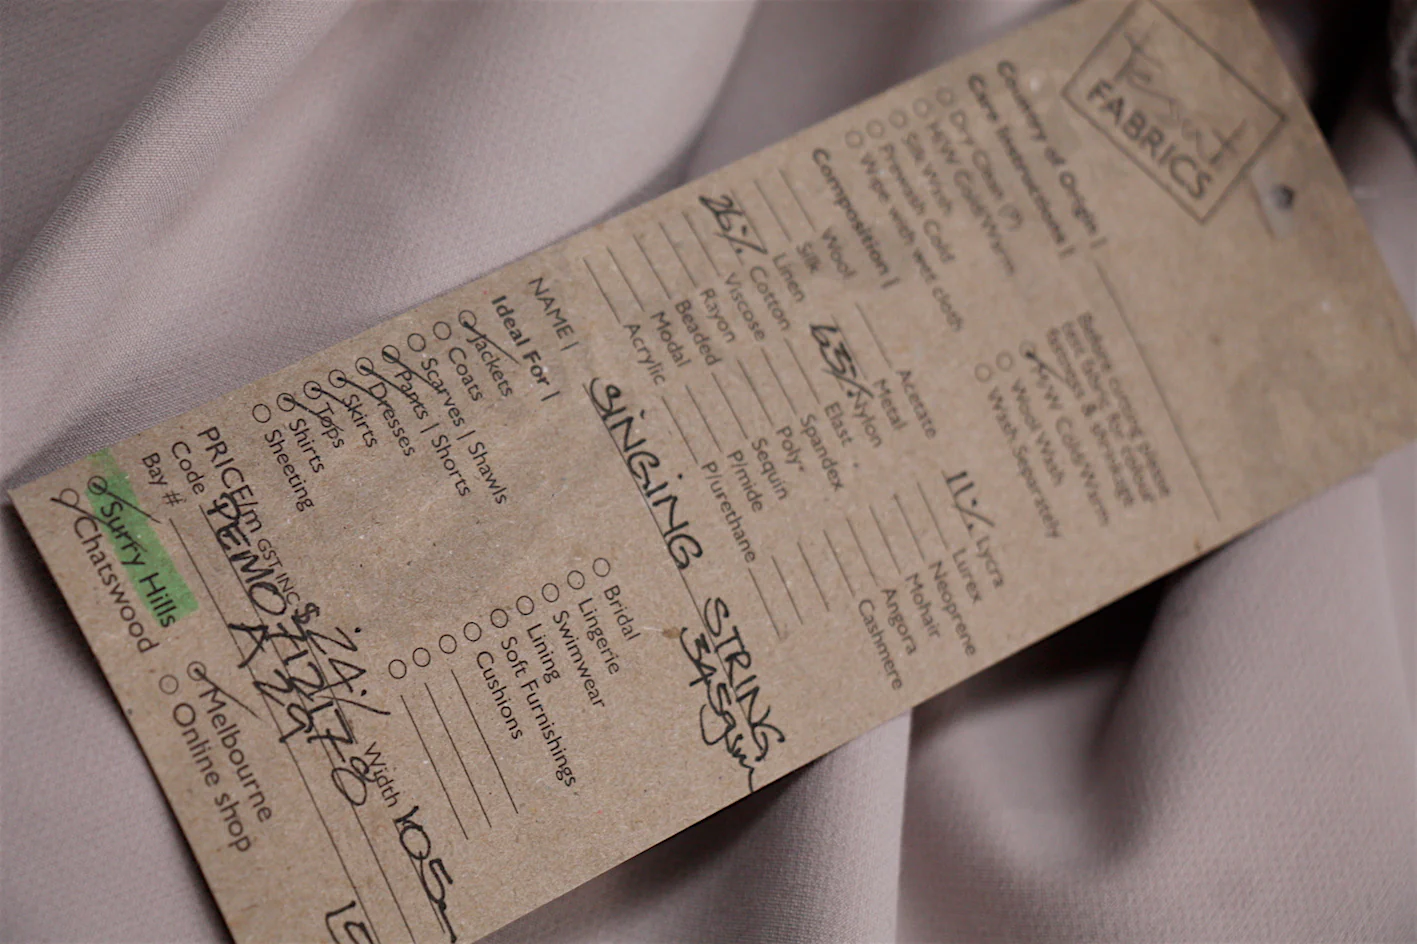 Tessuti
FABRICS
Country of Origin |
Care Instructions |
Dry Clean (P)
H/W Cold/Warm
Silk Wash
Prewash Cold
Wipe with wet cloth
M/W Cold/Warm
Wool Wash
Wash Separately
Before cutting please
test fabric for colour
fastness & shrinkage
Composition |
Wool
Silk
Linen
26% Cotton
Viscose
Rayon
Beaded
Modal
Acrylic
Acetate
Metal
63% Nylon
Elast
Spandex
Poly
Sequin
P/mide
P/urethane
11% Lycra
Lurex
Neoprene
Mohair
Angora
Cashmere
NAME | SINGING STRING
345gsm
Ideal For |
Jackets
Coats
Scarves | Shawls
Pants | Shorts
Dresses
Skirts
Tops
Shirts
Sheeting
Bridal
Lingerie
Swimwear
Lining
Soft Furnishings
Cushions
PRICE/m GST INC $24.
Width 105
Code
Bay # A29
Surry Hills
Chatswood
Melbourne
Online shop